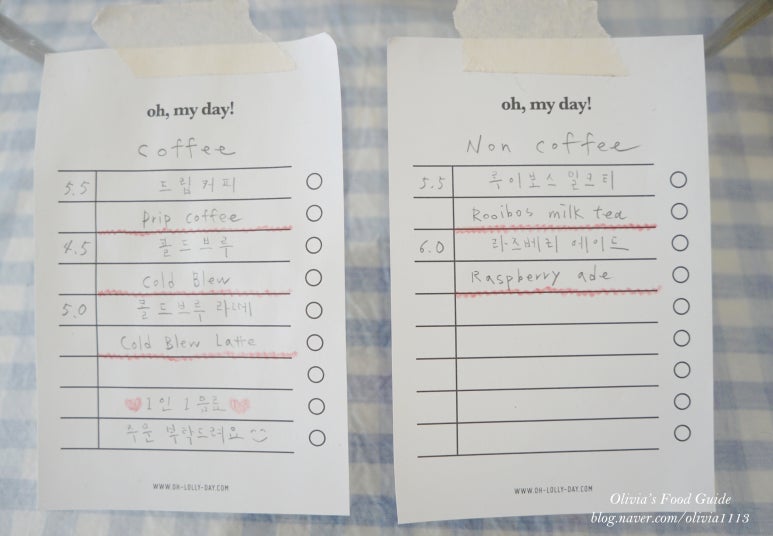 oh, my day!
Coffee
5.5 드립커피
Drip coffee
4.5 콜드브루
Cold Blew
5.0 콜드브루 라떼
Cold Blew Latte
1인 1음료
주문 부탁드려요
WWW.OH-LOLLY-DAY.COM
oh, my day!
Non coffee
5.5 루이보스 밀크티
Rooibos milk tea
6.0 라즈베리 에이드
Raspberry ade
WWW.OH-LOLLY-DAY.COM
Olivia's Food Guide
blog.naver.com/olivia1113